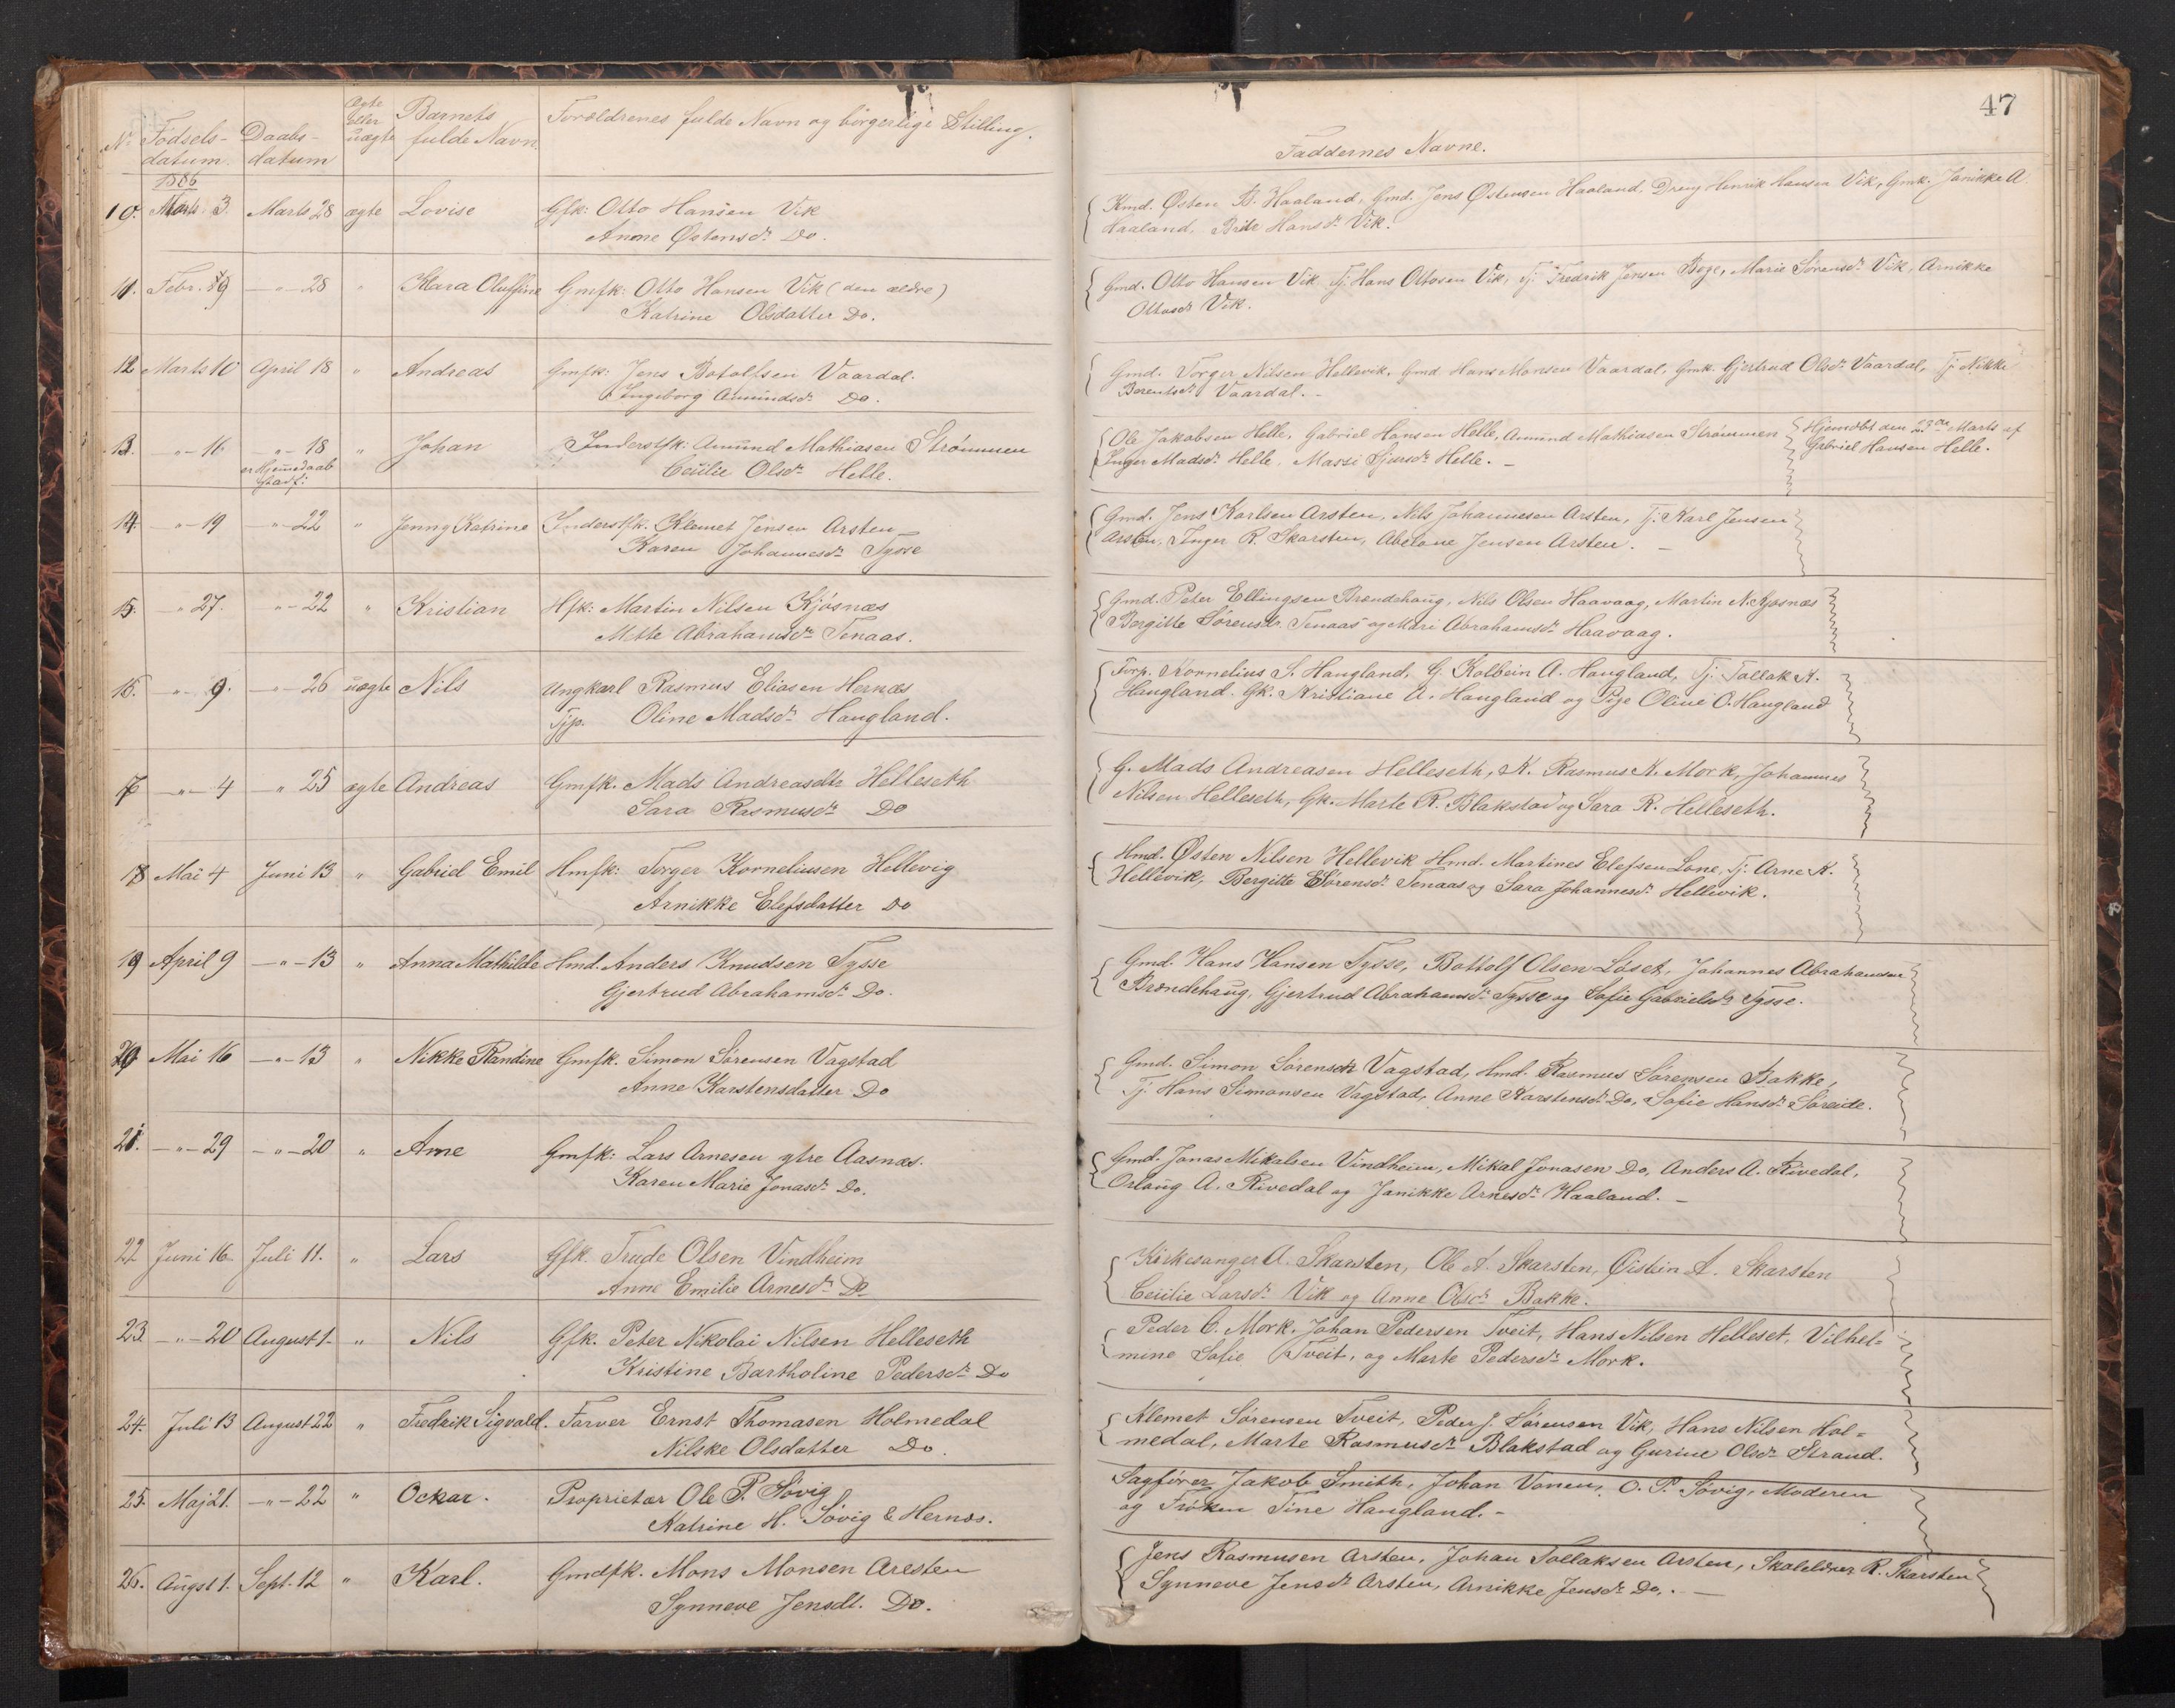 47
No Fødsels-datum. Daabs-datum Ægte eller uægte Barnets fulde Navn. Forældrenes fulde Navn og borgerlige Stilling. Faddernes Navne.
1886
10. Marts 3. Marts 28 ægte Lovise Gfk: Otto Hansen Vik
Anne Østensdr Do.
Kmd. Østen B. Haaland, Gmd. Jens Østensen Haaland, Dreng Henrik Hansen Vik, Gmk. Janikke A.
Haaland, Hansdr Vik.
11. Febr. 19 -"- 28 " Klara Oluffine Gmfk: Otto Hansen Vik (den ældre)
Katrine Olsdatter Do.
Gmd. Otto Hansen Vik, Tj. Hans Ottosen Vik, Tj. Fredrik Jensen Boge, Marie Sørensdr Vik, Arnikke
Ottosdr Vik.
12 Marts 10 April 18 " Andreas Gmfk: Jens Botolfsen Vaardal.
Ingeborg Amundsdr Do.
Gmd. Torger Nilsen Hellevik, Gmd Hans Monsen Vaardal, Gmk. Gjertrud Olsdr Vaardal, Tj. Nikke
Berentsdr Vaardal. -
13. -"- 11. -"- 18 " Johan Inderstfk: Amund Mathiasen Strømmen
er Hjemedaab
stadf:
Cecilie Olsdr Helle.
Ole Jakobsen Helle, Gabriel Hansen Helle, Amund Mathiasen Strømmen
Inger Madsdr Helle, Massi Sjursdr Helle. -
Hjemdøbt den 23de Marts af
Gabriel Hansen Helle.
14. -"- 19 -"- 22 " Jenny Katrine Inderstfk. Klemet Jensen Arsten
Karen Johannesdr Tysse
Gmd. Jens Karlsen Arsten, Nils Johannesen Arsten, Tj. Karl Jensen
Arsten, Inger R. Skarsten, Abelone Jensen Arsten. -
15. -"- 27. "- 22 " Kristian Hfk: Martin Nilsen Kjøsnæs
Mette Abrahamsdr Tenaas.
Gmd. Peter Ellingsen Brændehaug, Nils Olsen Haavaag, Martin N. Kjøsnæs
Bergitte Sørensdr. Tenaas og Mari Abrahamsdr Haavaag.
16. -"- 9. -"- 26 uægte Nils Ungkarl Rasmus Eliasen Hernæs
Tjp. Oline Madsdr Haugland.
Forp. Kornelius S. Haugland, G. Kolbein A. Haugland, Tj. Tollak K.
Haugland. Gk. Kristiane A. Haugland og Pige Oline O. Haugland
17 -"- 4 -"- 25 ægte Andreas Gmfk. Mads Andreasdtr Helleseth
Sara Rasmusdr Do
G. Mads Andreasen Helleseth, K. Rasmus K. Mork, Johannes
Nilsen Helleseth, Gk. Marte R. Blakstad og Sara R. Helleseth.
18 Mai 4 Juni 13 " Gabriel Emil Hmfk: Torger Korneliusen Hellevig
Arnikke Elefsdatter Do
Hmd. Østen Nilsen Hellevik Hmd. Martines Elefsen Lone, Tj. Arne K.
Hellevik, Bergitte Sørensdr Tenaas og Sara Johannesdr Hellevik.
19 April 9 -"- 13 " Anna Mathilde Hmd. Anders Knudsen Tysse
Gjertrud Abrahamsdr Do.
Gmd. Hans Hansen Tysse, Bottolf Olsen Løset, Johannes Abrahamsen
Brændehaug, Gjertrud Abrahamsdr Tysse og Sofie Gabrielsdr Tysse.
20 Mai 16 -"- 13 " Nikke Randine Gmfk. Simon Sørensen Vagstad
Anne Karstensdatter Do
Gmd. Simon Sørensen Vagstad, Hmd. Rasmus Sørensen Bakke,
Tj. Hans Simonsen Vagstad, Anne Karstensdr Do, Sofie Hansdr Søreide.
21. -"- 29 -"- 20 " Arne Gmfk: Lars Arnesen ytre Aasnæs.
Karen Marie Jonasdr Do.
Gmd. Jonas Mikalsen Vindheim, Mikal Jonasen Do, Anders A. Rivedal,
Orlaug A. Rivedal og Janikke Arnesdr Haaland. -
22 Juni 16 Juli 11. " Lars Gfk. Trude Olsen Vindheim
Anne Emilie Arnesdr Do
Kirkesanger A. Skarsten, Ole A. Skarsten, Øistein A. Skarsten
Cecilie Larsdr Vik og Anne Olsdr Bakke.
23. -"- 20 August 1. " Nils Gfk. Peter Nikolai Nilsen Helleseth
Kristine Bartholine Pedersdr Do
Peder C. Mork, Johan Pedersen Tveit, Hans Nilsen Helleset, Vilhel=
mine Sofie Tveit, og Marte Pedersdr Mork.
24. Juli 13 August 22 " Fredrik Sigvald. Farver Ernst Thomasen Holmedal
Nilske Olsdatter Do.
Klemet Sørensen Tveit, Peder J. Sørensen Vik, Hans Nilsen Hol=
medal, Marte Rasmusdr Blakstad og Gurine Olsdr Strand.
25. Maj 21. -"- 22 " Ockar. Proprietær Ole P. Søvig
Katrine H. Søvig & Hernæs.
Sagfører Jakob Smith, Johan Vonen, O. P. Søvig, Moderen
og Frøken Tine Haugland. -
26. Augst 1. Sept. 12 " Karl. Gmdfk. Mons Monsen Aresten
Synneve Jensdt. Do.
Jens Rasmusen Arsten, Johan Tollaksen Arsten, Skolelærer R. Skarsten
Synneve Jensdr Arsten, Arnikke Jensdr Do,. -